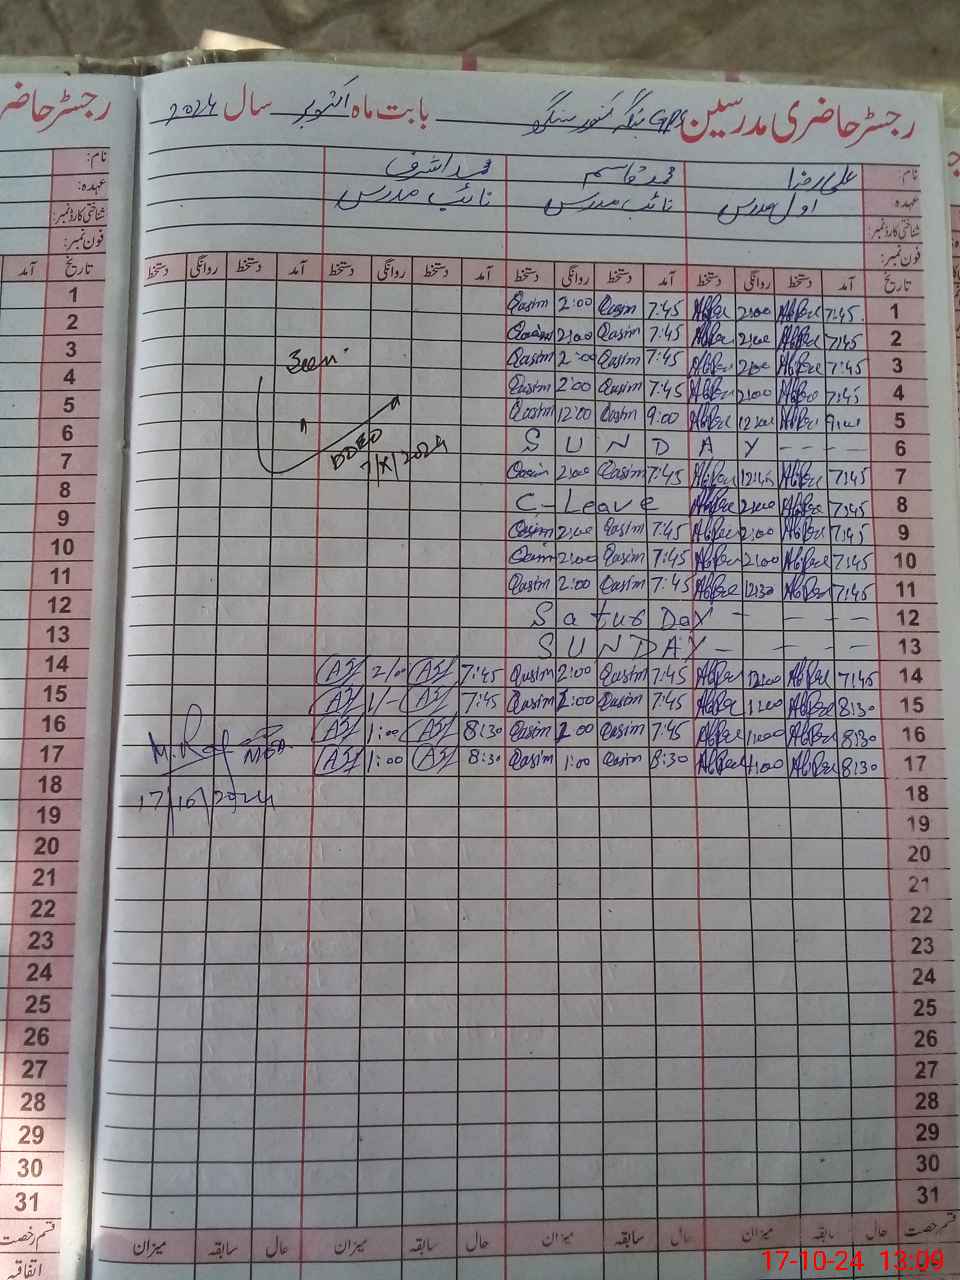 رجسٹر حاضری مدرسین GPS بنگلہ کنور سنگھ بابت ماہ اکتوبر سال 2024
نام: علی رضا محمد قاسم محمد اشرف
عہدہ اول مدرس نائب مدرس نائب مدرس
شناختی کارڈ نمبر:
فون نمبر:
تاریخ آمد دستخط روانگی دستخط آمد دستخط روانگی دستخط آمد دستخط روانگی دستخط آمد دستخط روانگی دستخط
1 7:45 2:00 7:45 Qasim 2:00 Qasim
2 7:45 2:00 7:45 Qasim 2:00 Qasim
3 7:45 2:00 7:45 Qasim 2:00 Qasim
Seen
4 7:45 2:00 7:45 Qasim 2:00 Qasim
5 9:00 12:00 9:00 Qasim 12:00 Qasim
6 SUNDAY - - - -
DDEO
7/X/2024
7 7:45 12:45 7:45 Qasim 2:00 Qasim
8 7:45 2:00 C-Leave
9 7:45 2:00 7:45 Qasim 2:00 Qasim
10 7:45 2:00 7:45 Qasim 2:00 Qasim
11 7:45 12:30 7:45 Qasim 2:00 Qasim
12 SaturDay - - - -
13 SUNDAY - - - -
14 7:45 12:00 7:45 Qasim 2:00 Qasim 7:45 2/00
15 8:30 1:00 7:45 Qasim 1:00 Qasim 7:45 1/-
16 8:30 1:00 7:45 Qasim 1:00 Qasim 8:30 1:00
17 8:30 1:00 8:30 Qasim 1:00 Qasim 8:30 1:00
17/10/2024
18
19
20
21
22
23
24
25
26
27
28
29
30
31
قسم رخصت حال سابقہ میزان حال سابقہ میزان حال سابقہ میزان حال سابقہ میزان
17-10-24 13:09
رجسٹر حاضر
نام:
عہدہ:
شناختی کارڈ نمبر:
فون نمبر:
تاریخ آمد
1
2
3
4
5
6
7
8
9
10
11
12
13
14
15
16
17
18
19
20
21
22
23
24
25
26
27
28
29
30
31
قسم رخصت
اتفاقیہ